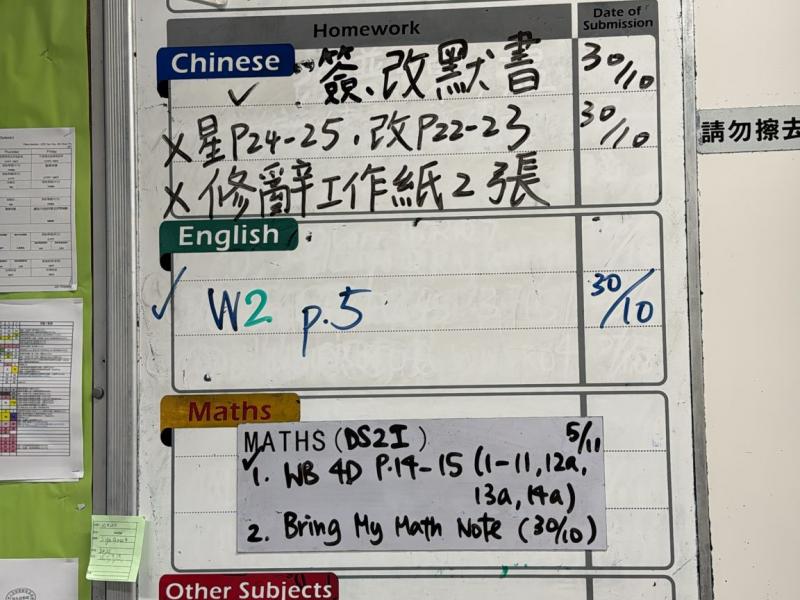 Homework
Date of Submission
Chinese
簽、改默書 30/10
✓
×星P24-25，改P22-23 30/10
×修辭工作紙2張
請勿擦去
English
✓ W2 p.5 30/10
Maths
MATHS (DS2I) 5/11
✓1. WB 4D P.14-15 (1-11, 12a,
13a, 14a)
2. Bring My Math Note (30/10)
Other Subjects